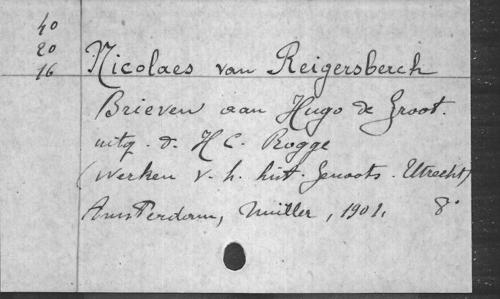 40
20
16
Nicolaes van Reigersberch
Brieven aan Hugo de Groot.
uitg. d. H C. Rogge
(Werken v. h. hist. Genoots. Utrecht)
Amsterdam, Muller, 1901. 8°